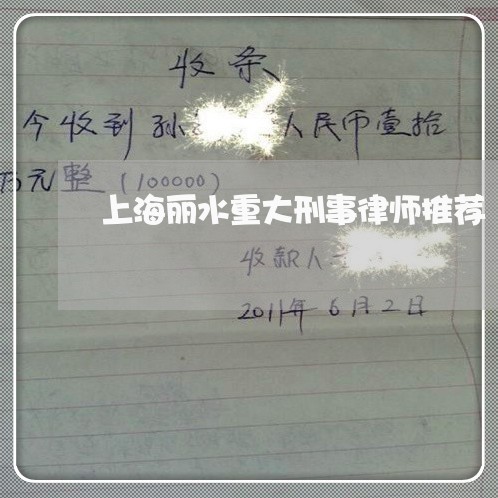 收条
今收到孙 人民币壹拾
万元整（100000）
上海丽水重大刑事律师推荐
收款人
2011年6月2日